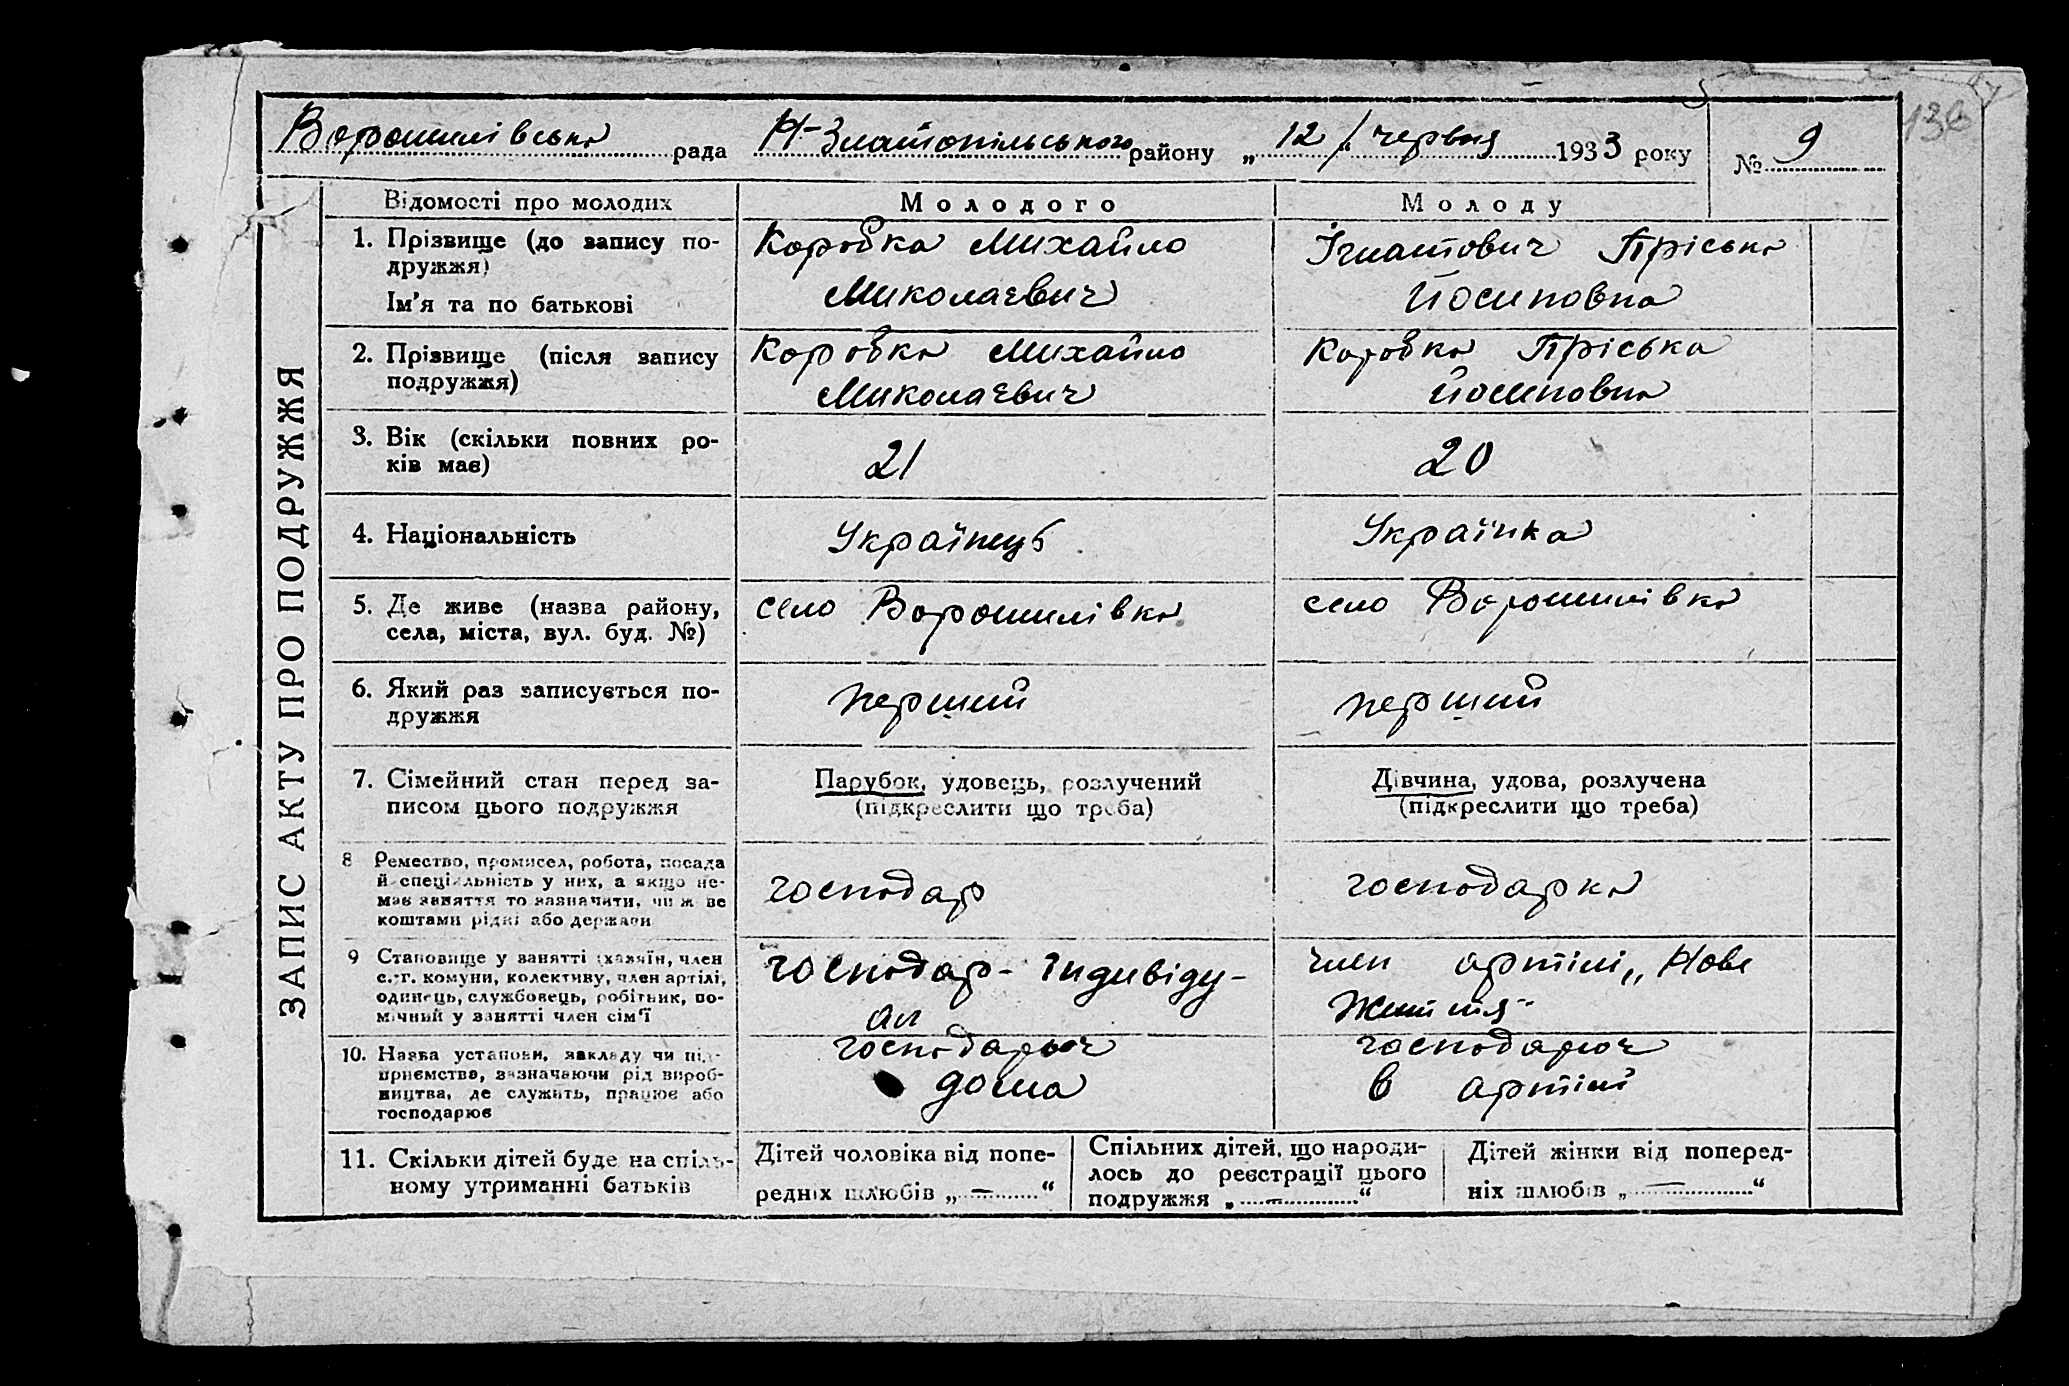 136
Ворошилівська рада Н-Златопільського району „12/" червня 1933 року № 9
ЗАПИС АКТУ ПРО ПОДРУЖЖЯ
Відомості про молодих
Молодого
Молоду
1. Прізвище (до запису по-
дружжя)
Ім'я та по батькові
Коробка Михайло
Миколаєвич
Ігнатович Пріська
Йосиповна
2. Прізвище (після запису
подружжя)
Коробка Михайло
Миколаєвич
Коробка Пріська
Йосиповна
3. Вік (скільки повних ро-
ків має)
21
20
4. Національність
Українець
Українка
5. Де живе (назва району,
села, міста, вул. буд. №)
село Ворошилівка
село Ворошилівка
6. Який раз записується по-
дружжя
перший
перший
7. Сімейний стан перед за-
писом цього подружжя
Парубок, удовець, розлучений
(підкреслити що треба)
Дівчина, удова, розлучена
(підкреслити що треба)
8 Ремество, промисел, робота, посада
й спеціяльність у них, а якщо не-
має заняття то зазначити, чиїм же
коштами рідні або держави
господар
господарка
9 Становище у занятті (хазяїн, член
с.-г. комуни, колективу, член артілі,
одинець, службовець, робітник, по-
мічний у занятті член сім'ї
господар - індивіду-
ал
член артілі „Нове
Життя"
10. Назва установи, закладу чи під-
приємства, зазначаючи рід вироб-
ництва, де служить, працює або
господарює
господарює
дома
господарює
в артілі
11. Скільки дітей буде на спіль-
ному утриманні батьків
Дітей чоловіка від попе-
редніх шлюбів „ — “
Спільних дітей, що народи-
лось до реєстрації цього
подружжя „ — “
Дітей жінки від поперед-
ніх шлюбів „ — “